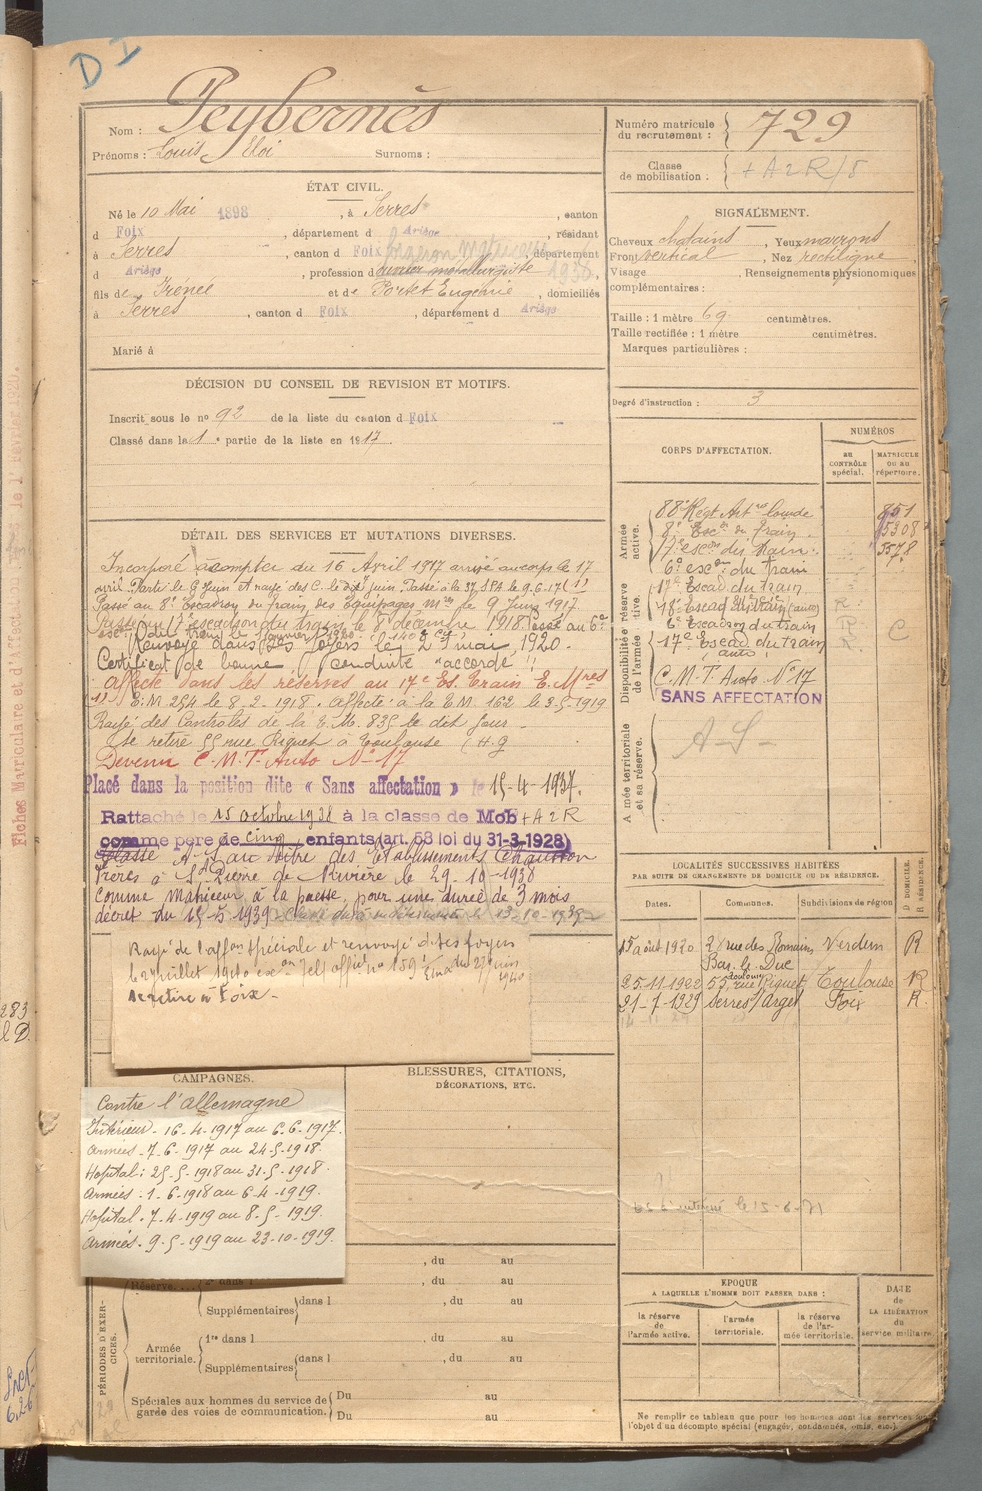 D I
Nom : Peybernès
Prénoms : Louis, Eloi Surnoms :
Numéro matricule du recrutement : 729
Classe de mobilisation : + A 2 R/8
ÉTAT CIVIL.
Né le 10 Mai 1898, à Serres, canton
d Foix, département d Ariège, résidant
à Serres, canton d Foix, département
d Ariège, profession d métallurgiste 1936.
fils de Irénée et de Portet Eugénie, domiciliés
à Serres, canton d Foix, département d Ariège
Marié à
SIGNALEMENT.
Cheveux chatains, Yeux marrons
Front vertical, Nez rectiligne
Visage , Renseignements physionomiques
complémentaires :
Taille : 1 mètre 69 centimètres.
Taille rectifiée : 1 mètre centimètres.
Marques particulières :
Degré d'instruction : 3
DÉCISION DU CONSEIL DE REVISION ET MOTIFS.
Inscrit sous le n° 92 de la liste du canton d Foix
Classé dans la 1e partie de la liste en 1917.
DÉTAIL DES SERVICES ET MUTATIONS DIVERSES.
Incorporé à compter du 16 Avril 1917 arrivé au corps le 17
avril. Parti le 6 Juin et rayé des C. le dit Juin. Passé à le 9.6.17 (1)
Passé au 8e Escadron du train des Equipages Mres le 9 Juin 1917.
Passé au 17 escadron du train le 8 décembre 1918. Passé au 6e
esc. du train le janvier 1920.
Renvoyé dans ses foyers le 29 mai 1920.
Certificat de bonne conduite "accordé"
Affecté dans les réserves au 17e Es. Train E. Mres
(1) E.M. 254 le 8-2-1918. Affecté à la E.M. 162 le 3-5-1919
Rayé des Contrôles de la E.M. 835 le dit jour.
Se retire 55 rue Riquet à Toulouse (H.G
Devenu C.M.T. Auto N° 17
Placé dans la position dite « Sans affectation » le 15-4-1937.
Rattaché le 15 octobre 1938 à la classe de Mob + A 2 R
comme père de cinq enfants (art. 58 loi du 31-3-1928)
Classé A.S. au titre des Etablissements Chausson
Frères à St Pierre de Rivière le 29-10-1938
comme manieur à la presse, pour une durée de 3 mois
décret du 15-5-1939
Rayé de l'affon Spéciale et renvoyé d ses foyers
le 27 juillet 1940 exon Tel offiel n° 159 du 27 juin 1940
Se retire à Foix.
CORPS D'AFFECTATION.
NUMÉROS
au CONTRÔLE spécial.
MATRICULE ou au répertoire.
Armée active.
88e Regt Artie lourde 951
8e Escon du Train. 5308
17e escon du train. 5578
6e escon du train
Disponibilité et réserve de l'armée active.
17e Escad. du train
18e Escad. du train (auto) R.
6e Escadron du train R. C
17e Escad. du train R.
(auto)
C.M.T. Auto N° 17
SANS AFFECTATION
Armée territoriale et sa réserve.
A-S-
LOCALITÉS SUCCESSIVES HABITÉES
PAR SUITE DE CHANGEMENTS DE DOMICILE OU DE RÉSIDENCE.
Dates. Communes. Subdivisions de région D. DOMICILE. R. RÉSIDENCE.
15 août 1920 2 rue des Romains Verdun R
Bar-le-Duc
25.11.1922 Toulouse 55, rue Riquet Toulouse R
21-7-1929 Serres s/Arget Foix R.
CAMPAGNES.
Contre l'allemagne
Intérieur - 16-4-1917 au 6.6.1917.
Armées - 7-6-1917 au 24-5-1918
Hopital : 25-5-1918 au 31-5-1918.
Armées : 1-6-1918 au 6-4-1919.
Hopital - 7-4-1919 au 8-5-1919.
Armées - 9-5-1919 au 23-10-1919.
BLESSURES, CITATIONS,
DÉCORATIONS, ETC.
PÉRIODES D'EXERCICES.
Réserve
, du au
, du au
Supplémentaires dans l , du au
Armée territoriale.
1re dans l , du au
Supplémentaires dans l , du au
Spéciales aux hommes du service de garde des voies de communication.
Du au
Du au
EPOQUE
A LAQUELLE L'HOMME DOIT PASSER DANS :
la réserve de l'armée active.
l'armée territoriale.
la réserve de l'armée territoriale.
DATE de LA LIBÉRATION du service militaire.
Ne remplir ce tableau que pour les hommes dont les services
l'objet d'un décompte spécial (engagés, condamnés, omis, etc.).